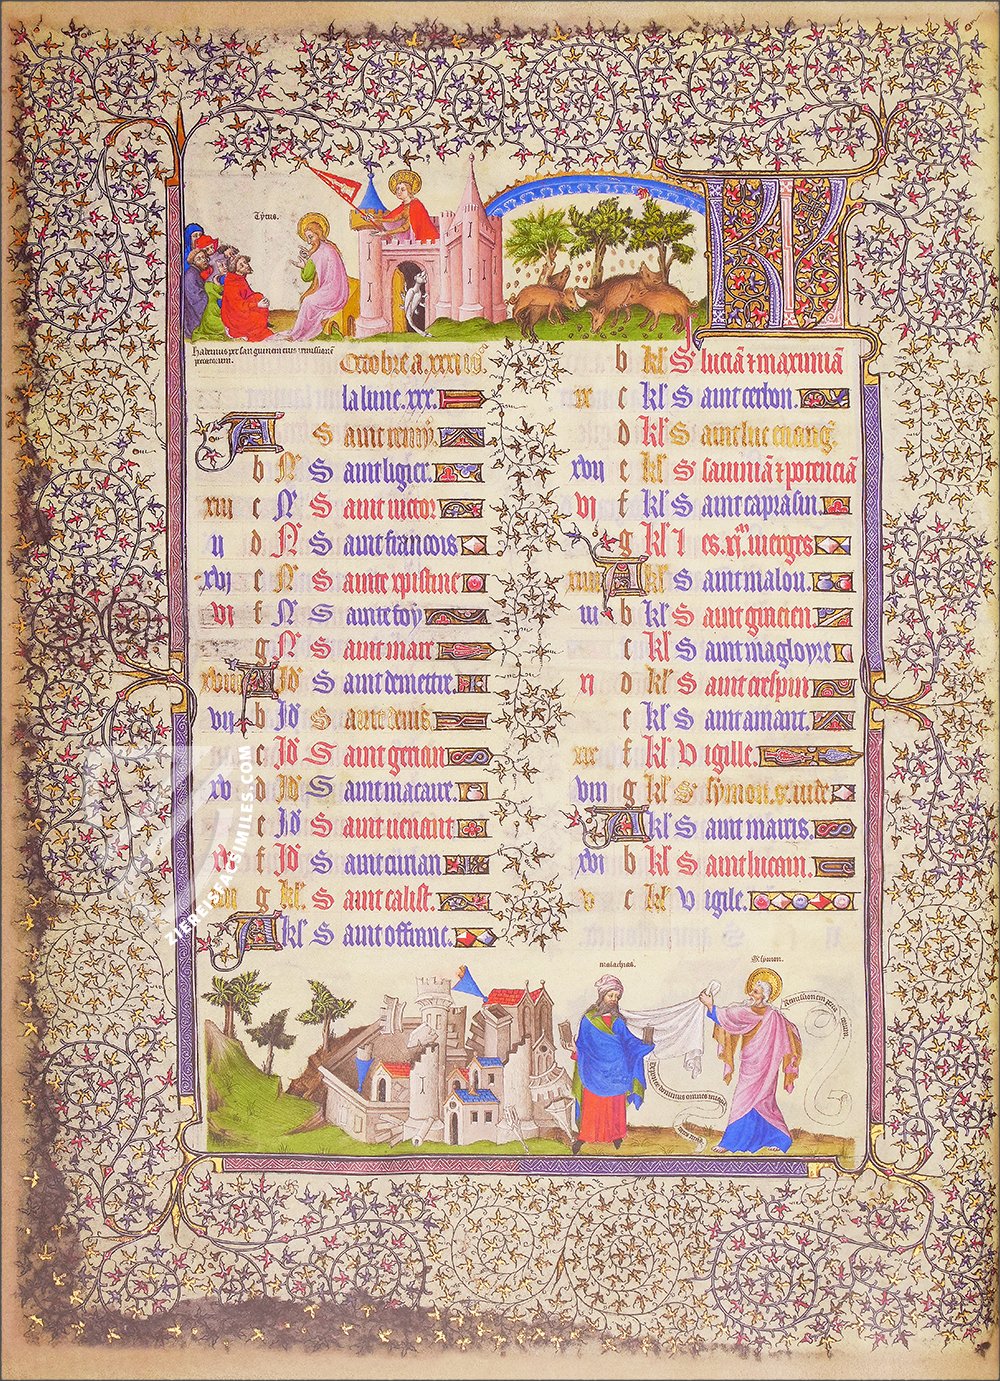 Tytus.
Octobre a. xxxi io.
la lune. xxx.
A Saint remy.
b N S aint ligier.
xiii c N S aint victor
ii d N S aint francois
xvi e N S ainte xpistine
vi f N S ainte foy
g N S aint marc
xviii A Id S aint demettre.
vii b Id S aint denis.
c Id S aint gerion
xv d Id S aint macaire.
e Id S aint uenant
f Id S aint cirian
g kl S aint calist.
A kl S aint offinne.
b kl S luciā & maximiā
ix c kl S aint cerbon.
d kl S aint luc euang
xvii e kl S sauiniā & potenciā
vi f kl S aint caprasin.
g kl L es. xi.m uierges
xiiii A kl S aint malou.
iii b kl S aint guicien
c kl S aint magloyre
xi d kl S aint crespin
e kl S aint amant.
xix f kl V igille.
viii g kl S symon & iude
A kl S aint mauris.
xvi b kl S aint lucain.
v c kl V igile.
malachias.
ZIEREIS FACSIMILES.COM